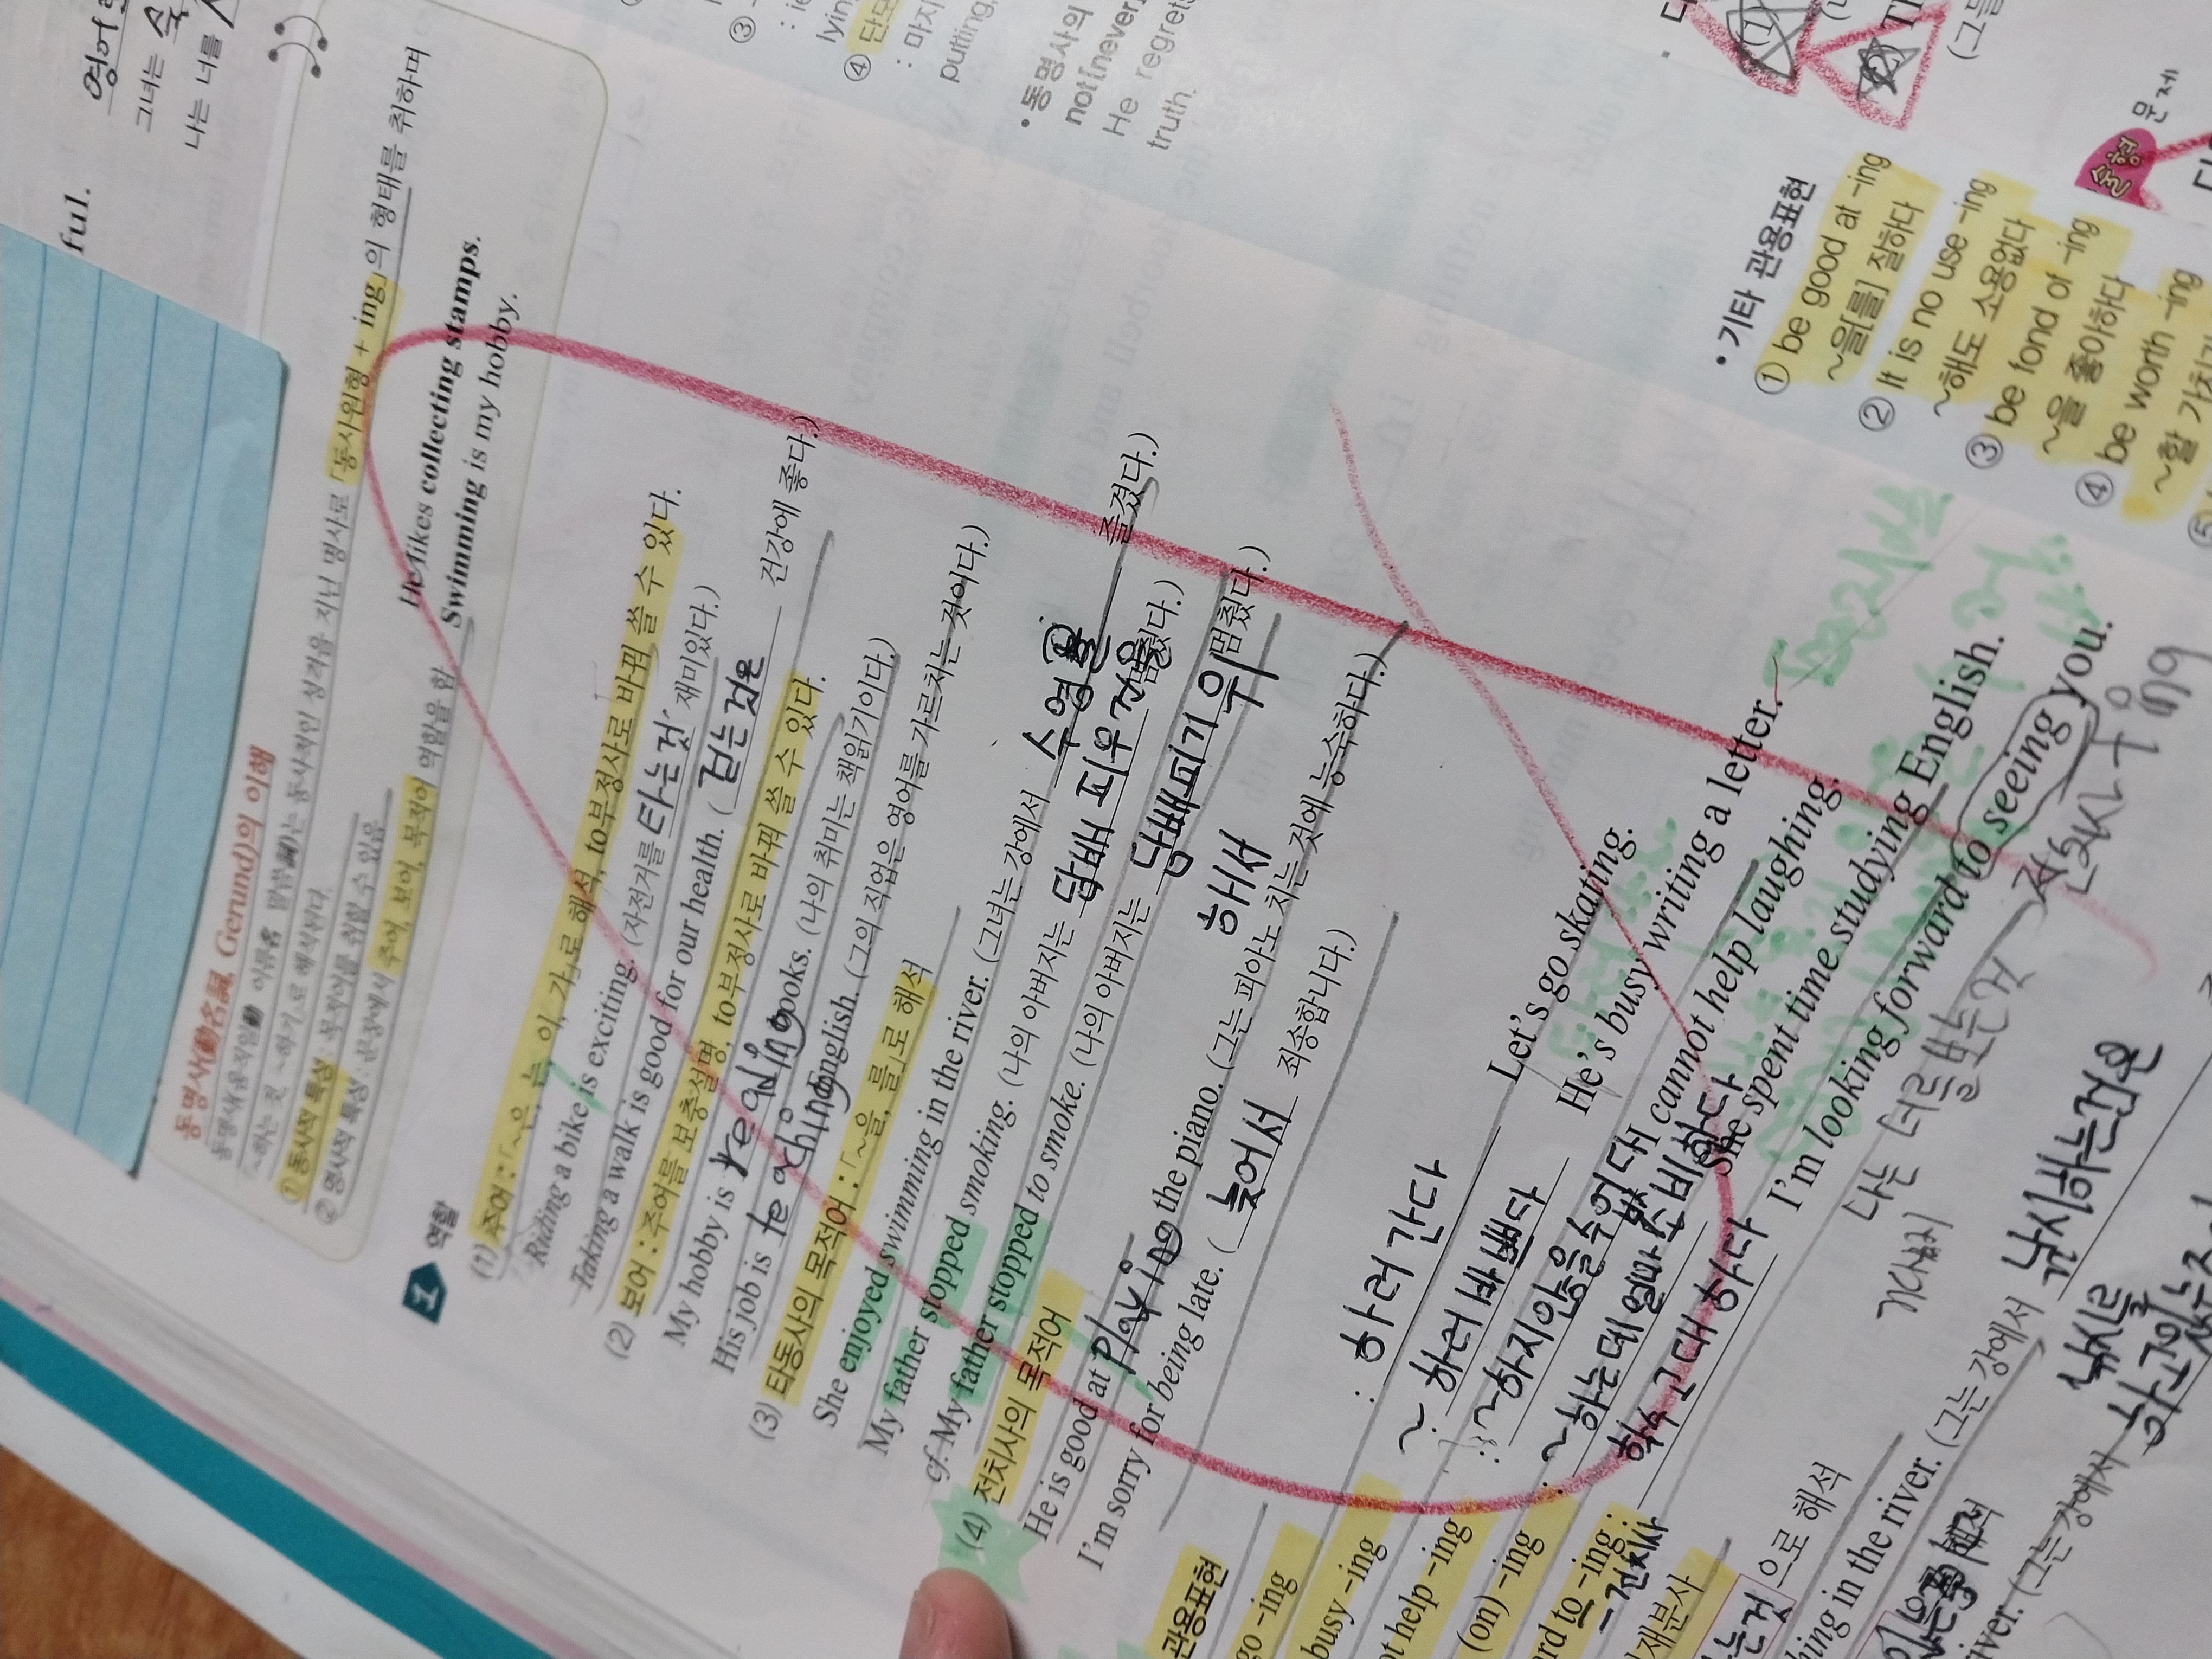 영어
그녀는
나는 너를
ful.
동명사(動名詞, Gerund)의 이해
동명사(움직일動 이름名 말씀詞)는 동사적인 성격을 지닌 명사로 「동사원형 + ing」의 형태를 취하며
「~하는 것, ~하기」로 해석된다.
① 동사적 특성 : 목적어를 취할 수 있음
② 명사적 특성 : 문장에서 주어, 보어, 목적어 역할을 함
He likes collecting stamps.
Swimming is my hobby.
1 역할
(1) 주어 : 「~은, 는, 이, 가」로 해석, to부정사로 바꿔 쓸 수 있다.
Riding a bike is exciting. (자전거를 타는 것 재미있다.)
Taking a walk is good for our health. ( 걷는 것은 건강에 좋다.)
(2) 보어 : 주어를 보충설명, to부정사로 바꿔 쓸 수 있다.
My hobby is reading books. (나의 취미는 책읽기이다.)
His job is teaching English. (그의 직업은 영어를 가르치는 것이다.)
(3) 타동사의 목적어 : 「~을, 를」로 해석
She enjoyed swimming in the river. (그녀는 강에서 수영을 즐겼다.)
My father stopped smoking. (나의 아버지는 담배 피우 것을 멈췄다.)
cf. My father stopped to smoke. (나의 아버지는 담배피기 위 멈췄다.)
해서
(4) 전치사의 목적어
He is good at playing the piano. (그는 피아노 치는 것에 능숙하다.)
I'm sorry for being late. ( 늦어서 죄송합니다.)
관용표현
go -ing : 하러 간다 Let's go skating.
busy -ing : ~하러 바쁘다 He's busy writing a letter.
ot help -ing : ~하지 않을 수 없다 I cannot help laughing.
(on) -ing : ~하는데 소비하다 She spent time studying English.
ard to -ing : 학수고대하다 I'm looking forward to seeing you.
전치사
나는 너를 보는 것
전치사
재분사
는 것 으로 해석
hing in the river. (그는 강에서 낚시하는 것은
해석
river. (그는 강에서
낚시를
하고 있는
④ 단모
: 마지
putting,
• 동명사의
not[never]
He regrets
truth.
• 기타 관용표현
① be good at -ing
~을[를] 잘하다
② It is no use -ing
~해도 소용없다
③ be fond of -ing
~을 좋아하다
④ be worth -ing
~할 가치가
⑤
(1)
(2) Th
(그들
출형 문제